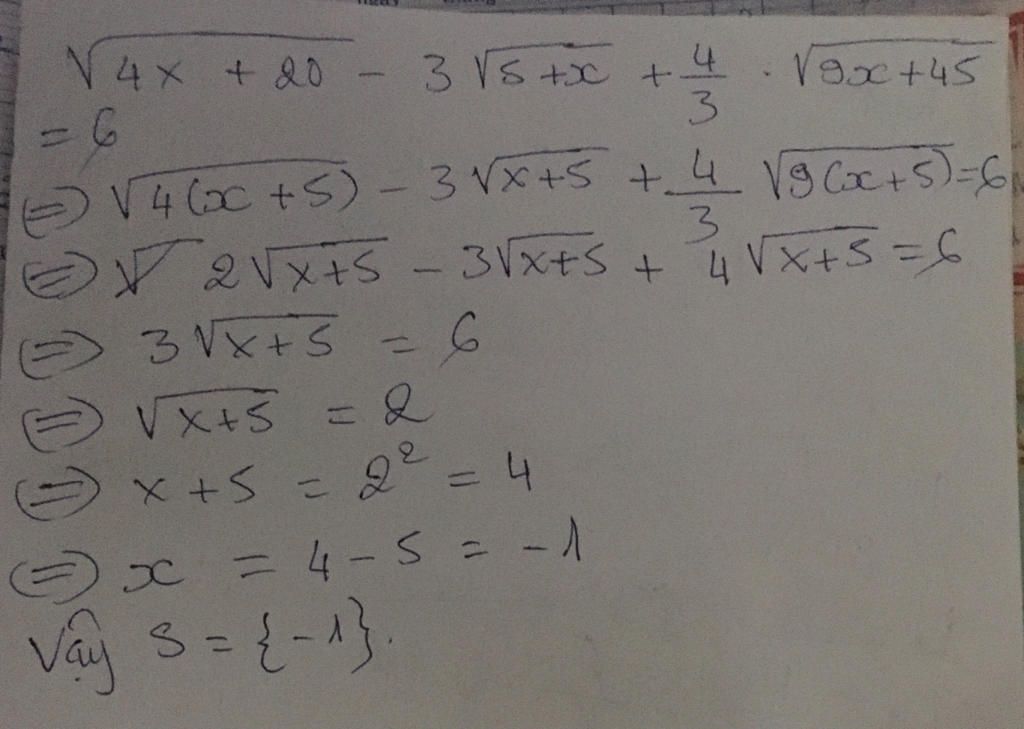 √(4x + 20) - 3√(5+x) + 4/3 . √(9x+45)
= 6
⇔ √(4(x+5)) - 3√(x+5) + 4/3 √(9(x+5)) = 6
⇔ 2√(x+5) - 3√(x+5) + 4√(x+5) = 6
⇔ 3√(x+5) = 6
⇔ √(x+5) = 2
⇔ x+5 = 2² = 4
⇔ x = 4-5 = -1
Vậy S = {-1}.